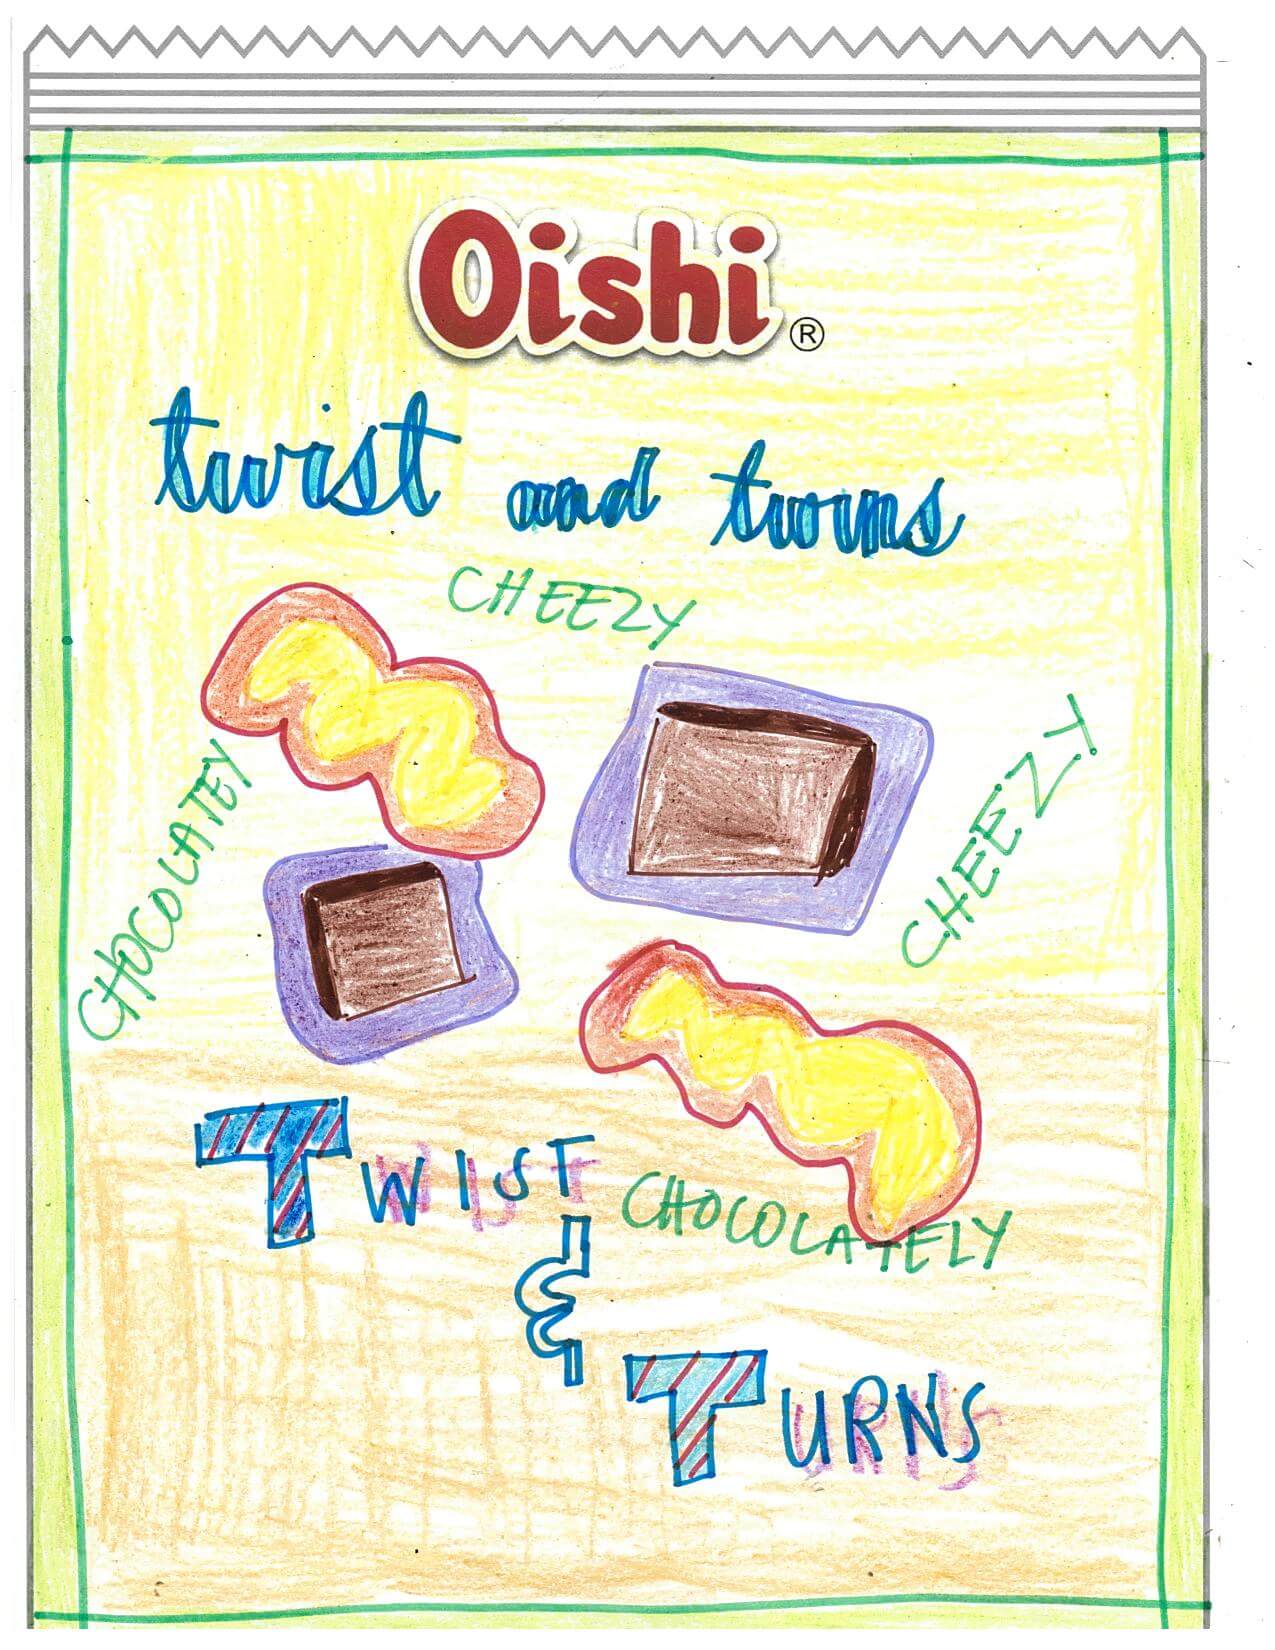 Oishi ®
twist and turns
CHEEZY
CHOCOLATEY
CHEEZY
TWIST
CHOCOLATELY
&
TURNS